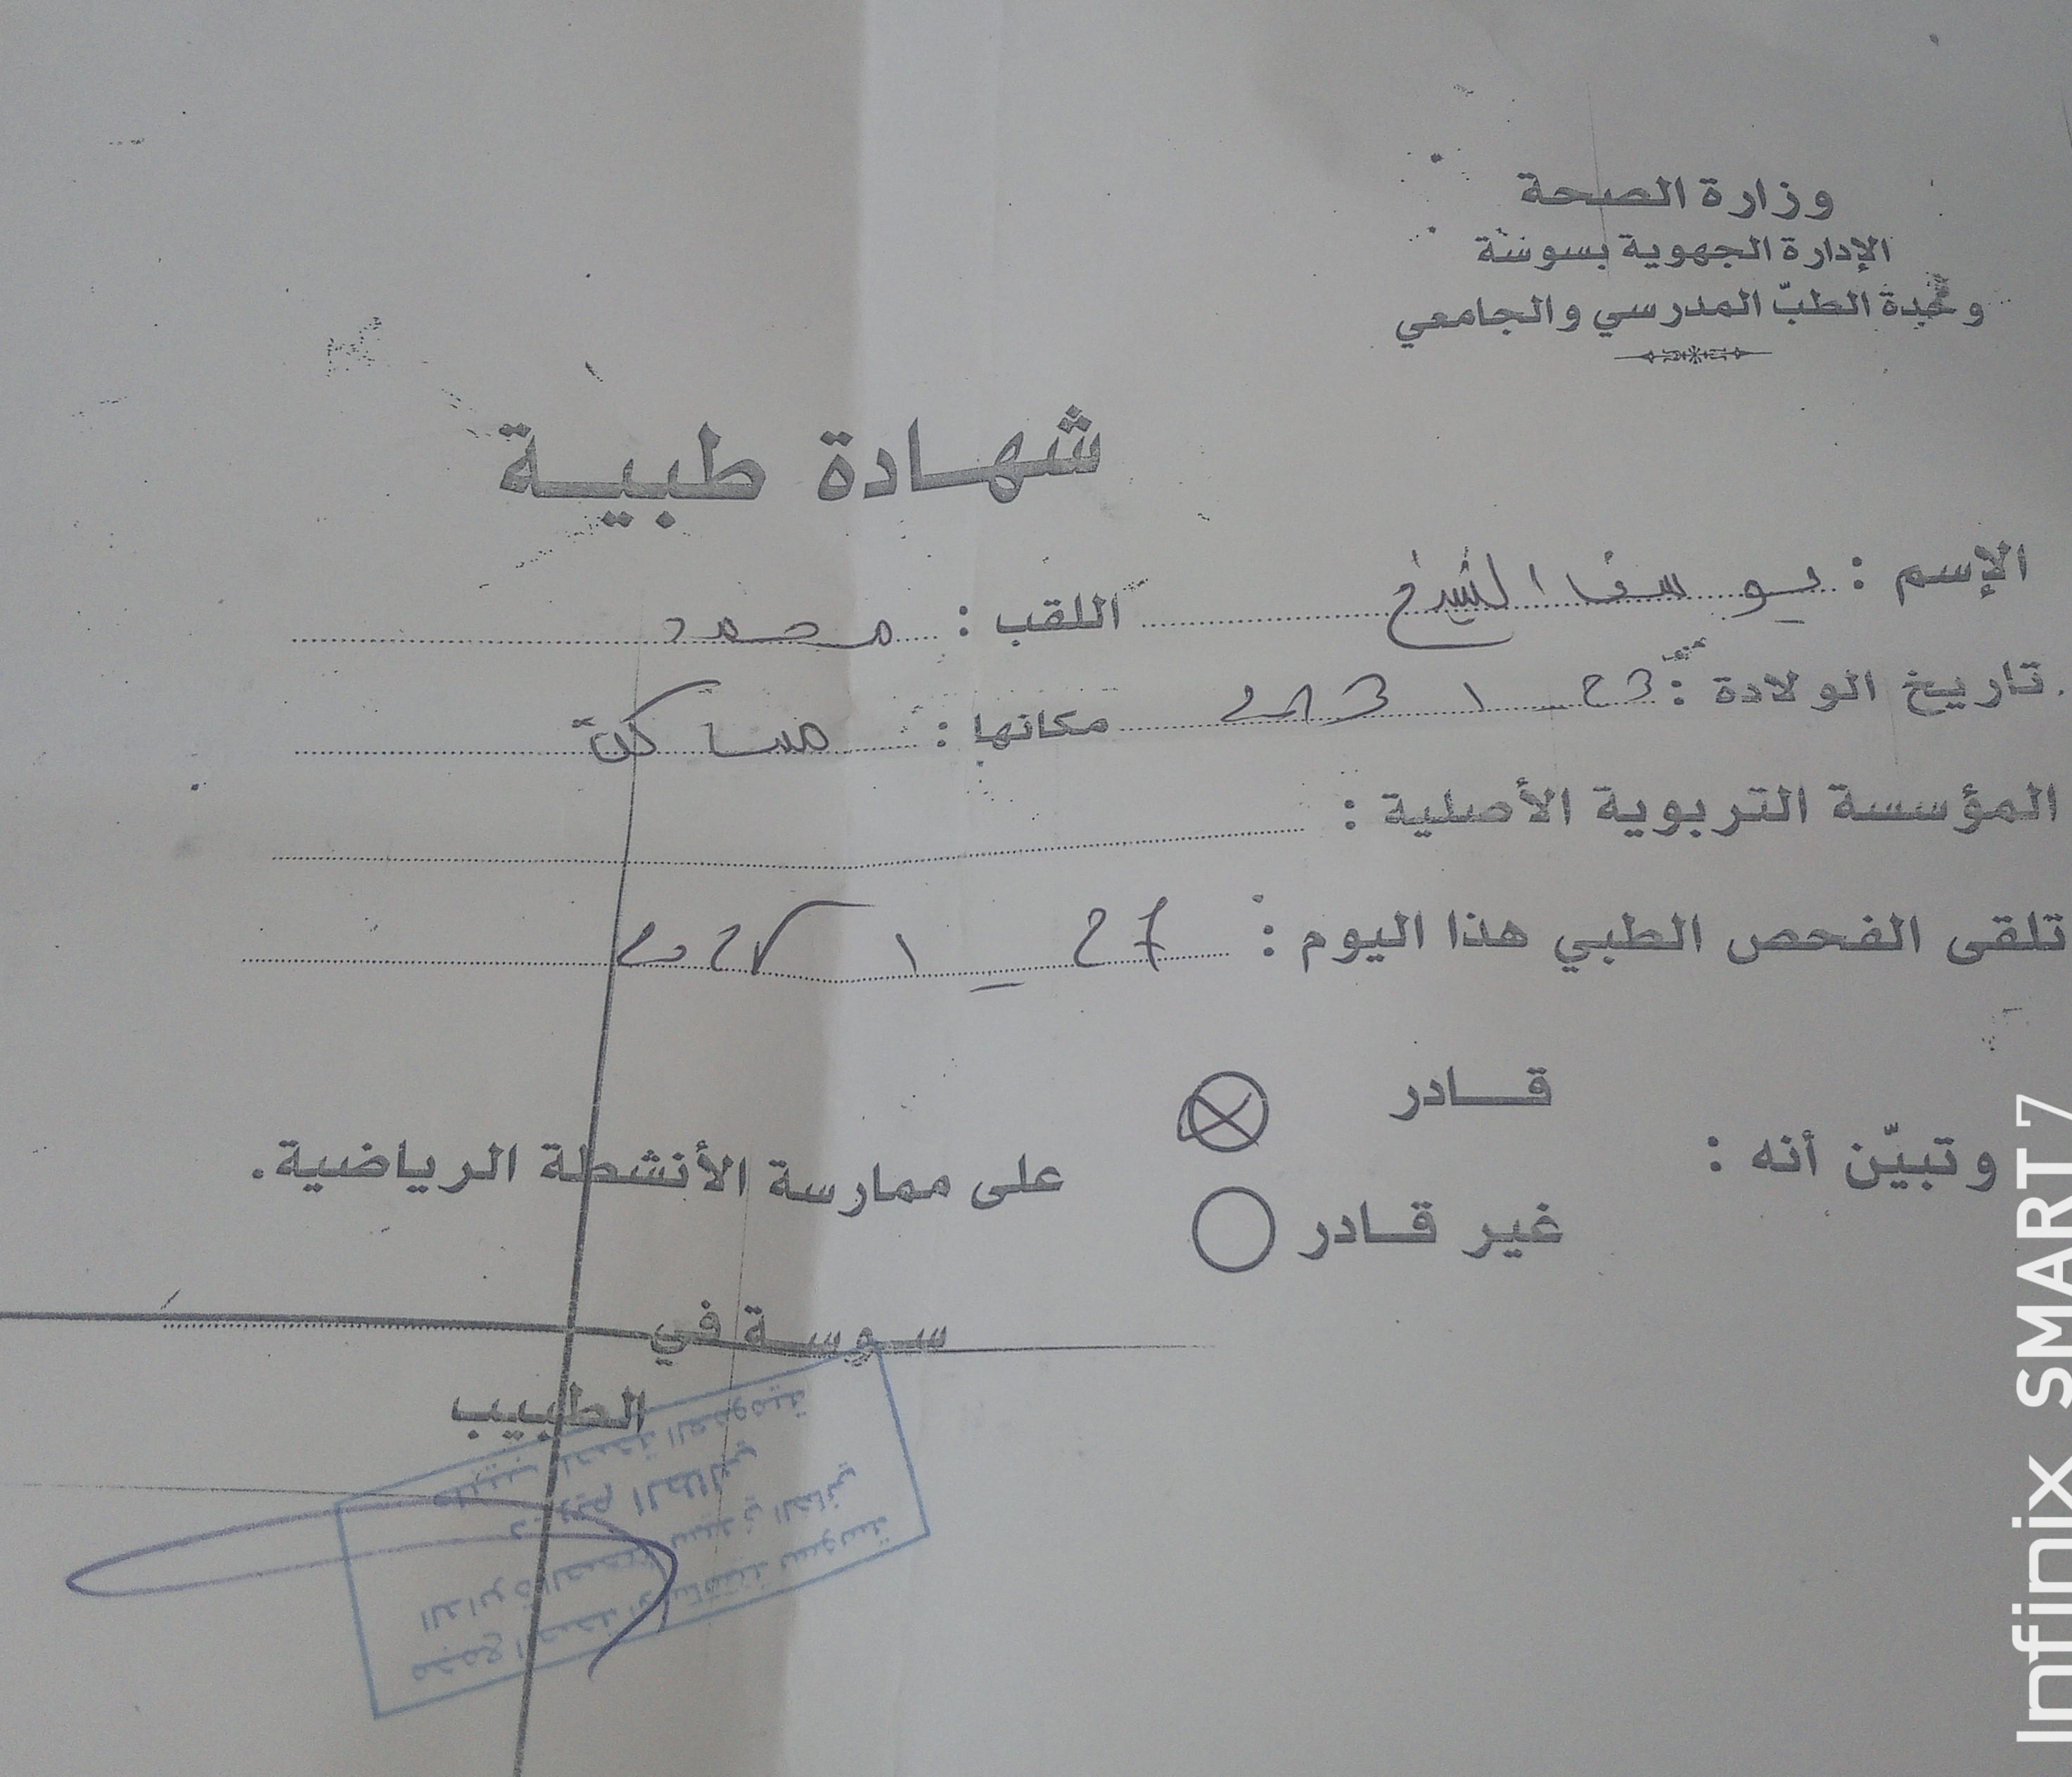 وزارة الصحة
الإدارة الجهوية بسوسة
وحدة الطبّ المدرسي والجامعي
شهادة طبية
الإسم : يوسف الشيخ اللقب : محمد
تاريخ الولادة : 23 مكانها : مساكن
المؤسسة التربوية الأصلية :
تلقى الفحص الطبي هذا اليوم : 27
قادر
وتبيّن أنه : على ممارسة الأنشطة الرياضية.
غير قادر
سوسة في
الطبيب
طبيب الصحة العمومية
الدائرة الصحية سيدي الهاني
مجمع الصحة الأساسية سوسة
Infinix SMART 7